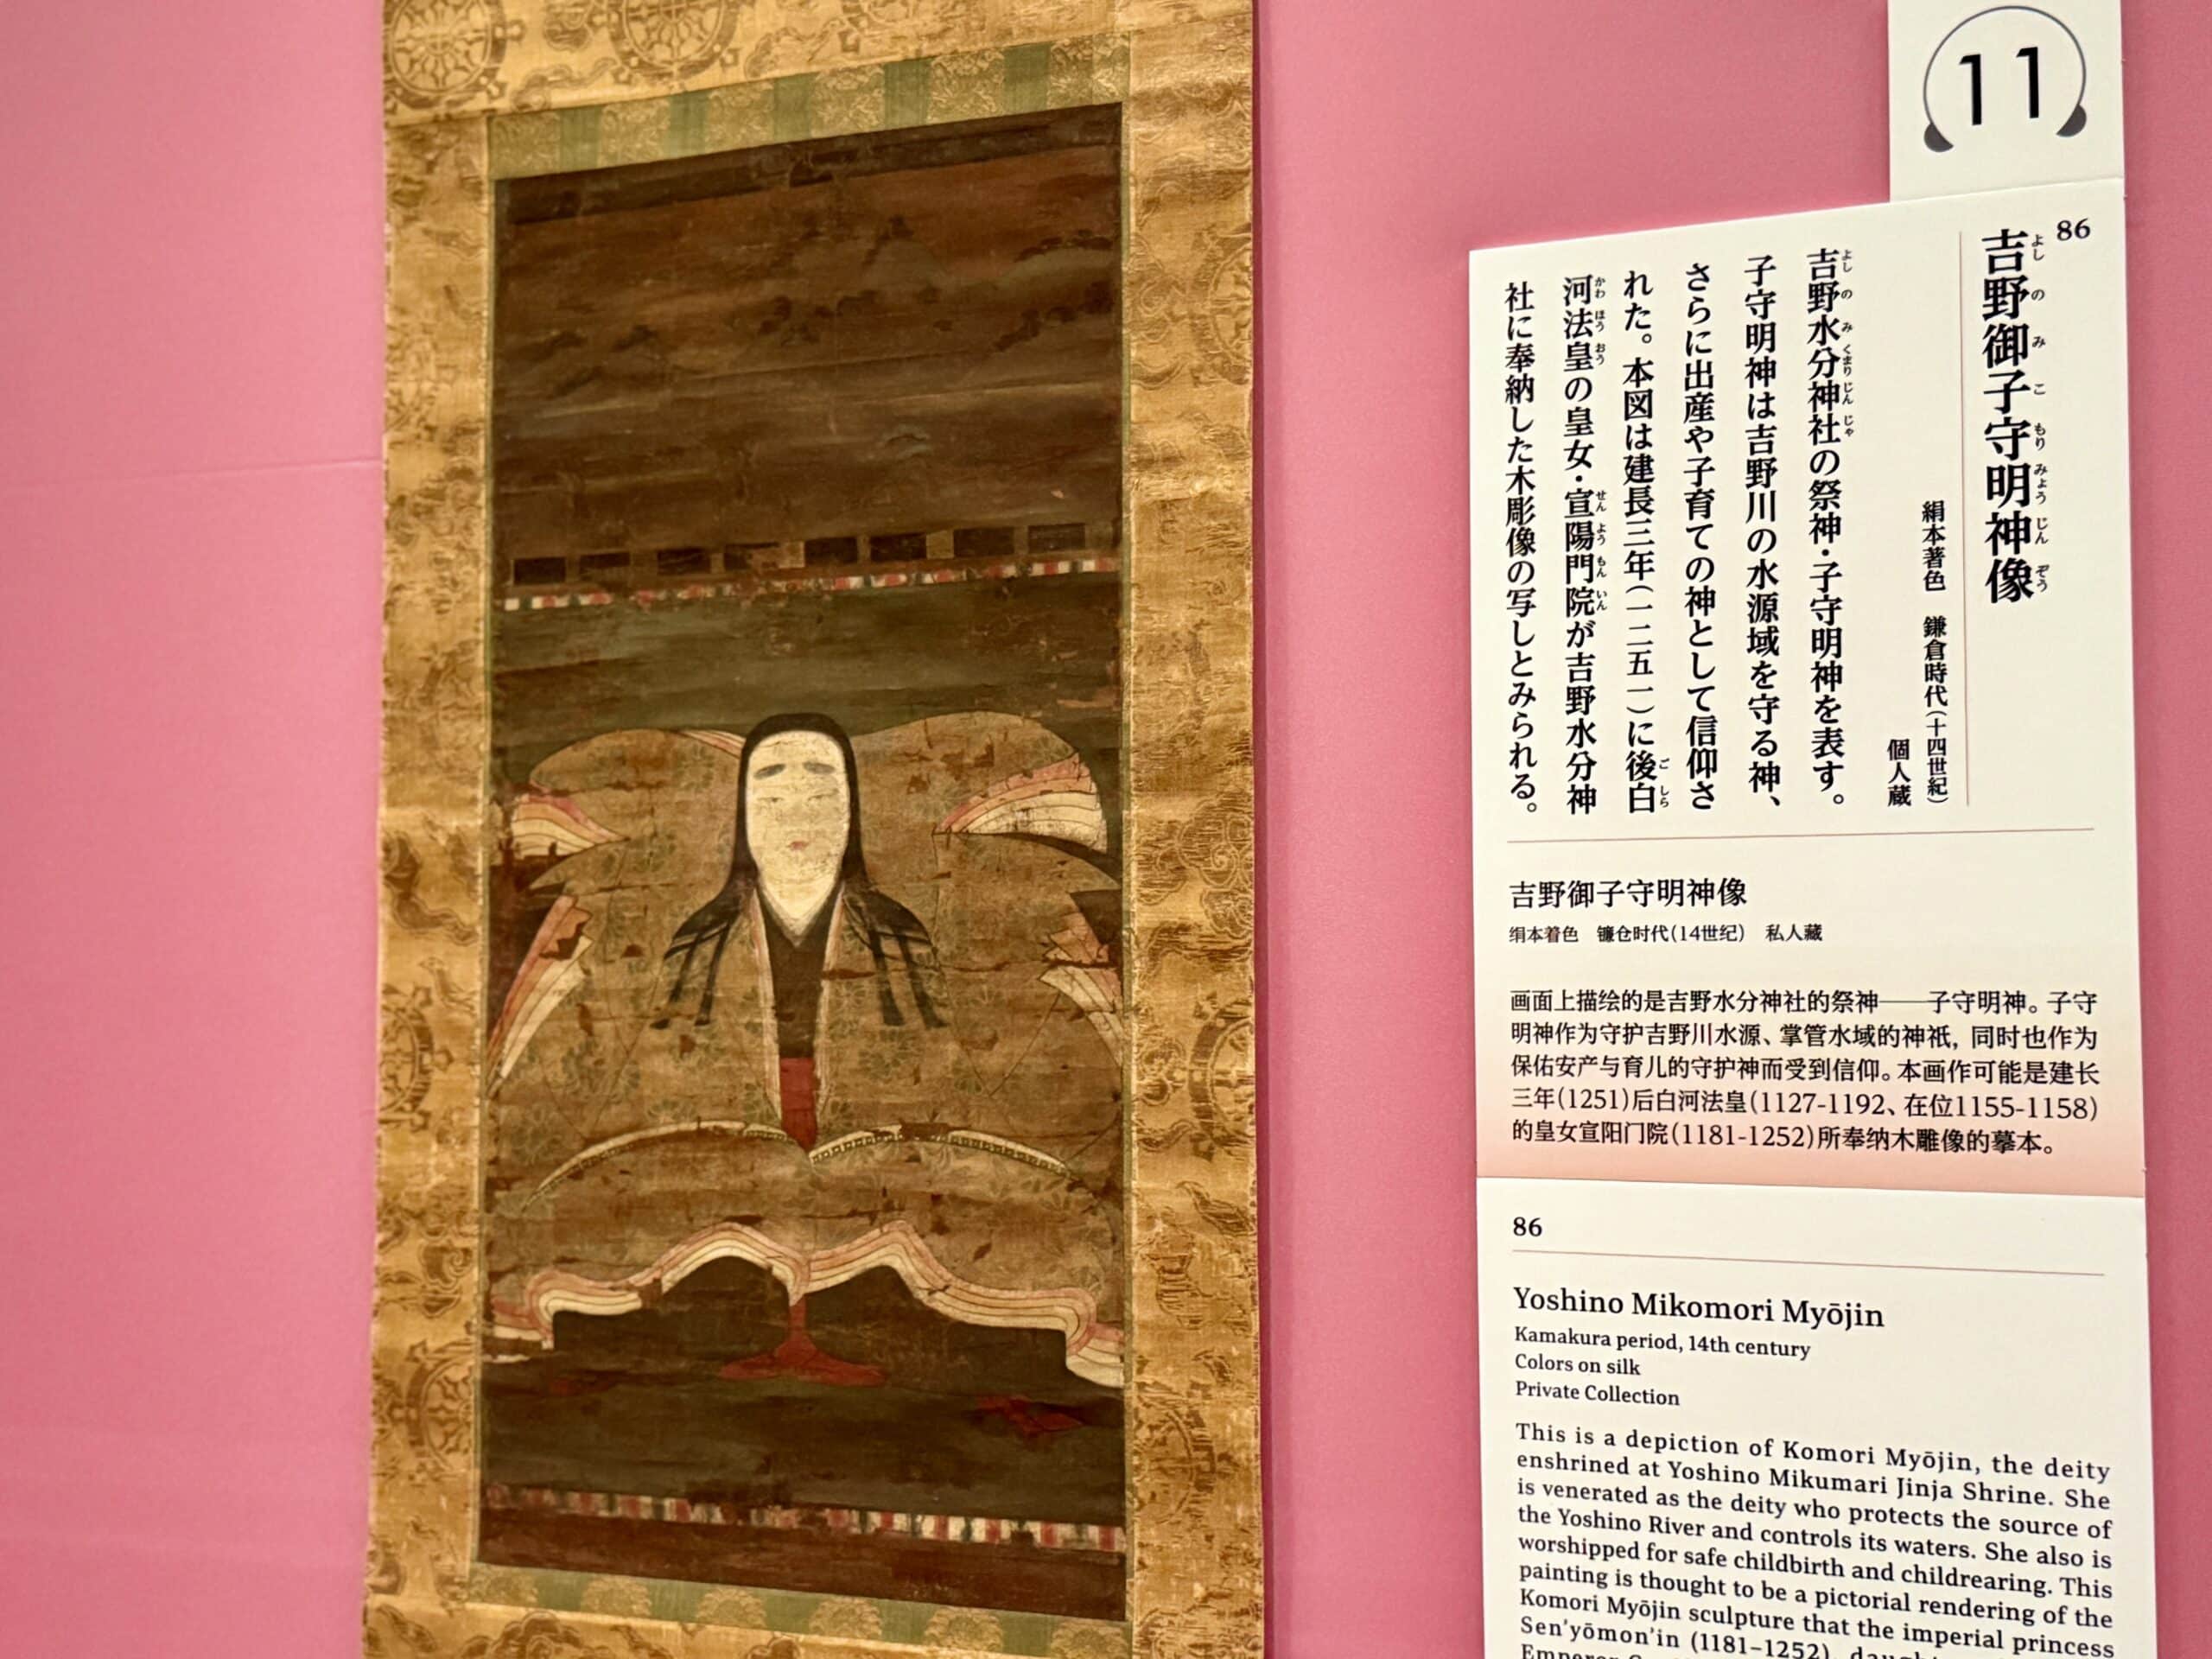 11
86
吉野御子守明神像
よしのみこもりみょうじんぞう
絹本著色 鎌倉時代(十四世紀)
個人蔵
吉野水分神社の祭神・子守明神を表す。
よしのみくまりじんじゃ
子守明神は吉野川の水源域を守る神、
さらに出産や子育ての神として信仰さ
れた。本図は建長三年(一二五一)に後白
ごしら
河法皇の皇女・宣陽門院が吉野水分神
かわほうおう せんようもんいん
社に奉納した木彫像の写しとみられる。
吉野御子守明神像
绢本着色 镰仓时代(14世纪) 私人藏
画面上描绘的是吉野水分神社的祭神——子守明神。子守
明神作为守护吉野川水源、掌管水域的神祇,同时也作为
保佑安产与育儿的守护神而受到信仰。本画作可能是建长
三年(1251)后白河法皇(1127-1192、在位1155-1158)
的皇女宣阳门院(1181-1252)所奉纳木雕像的摹本。
86
Yoshino Mikomori Myōjin
Kamakura period, 14th century
Colors on silk
Private Collection
This is a depiction of Komori Myōjin, the deity
enshrined at Yoshino Mikumari Jinja Shrine. She
is venerated as the deity who protects the source of
the Yoshino River and controls its waters. She also is
worshipped for safe childbirth and childrearing. This
painting is thought to be a pictorial rendering of the
Komori Myōjin sculpture that the imperial princess
Sen'yōmon'in (1181–1252), daught
Emperor